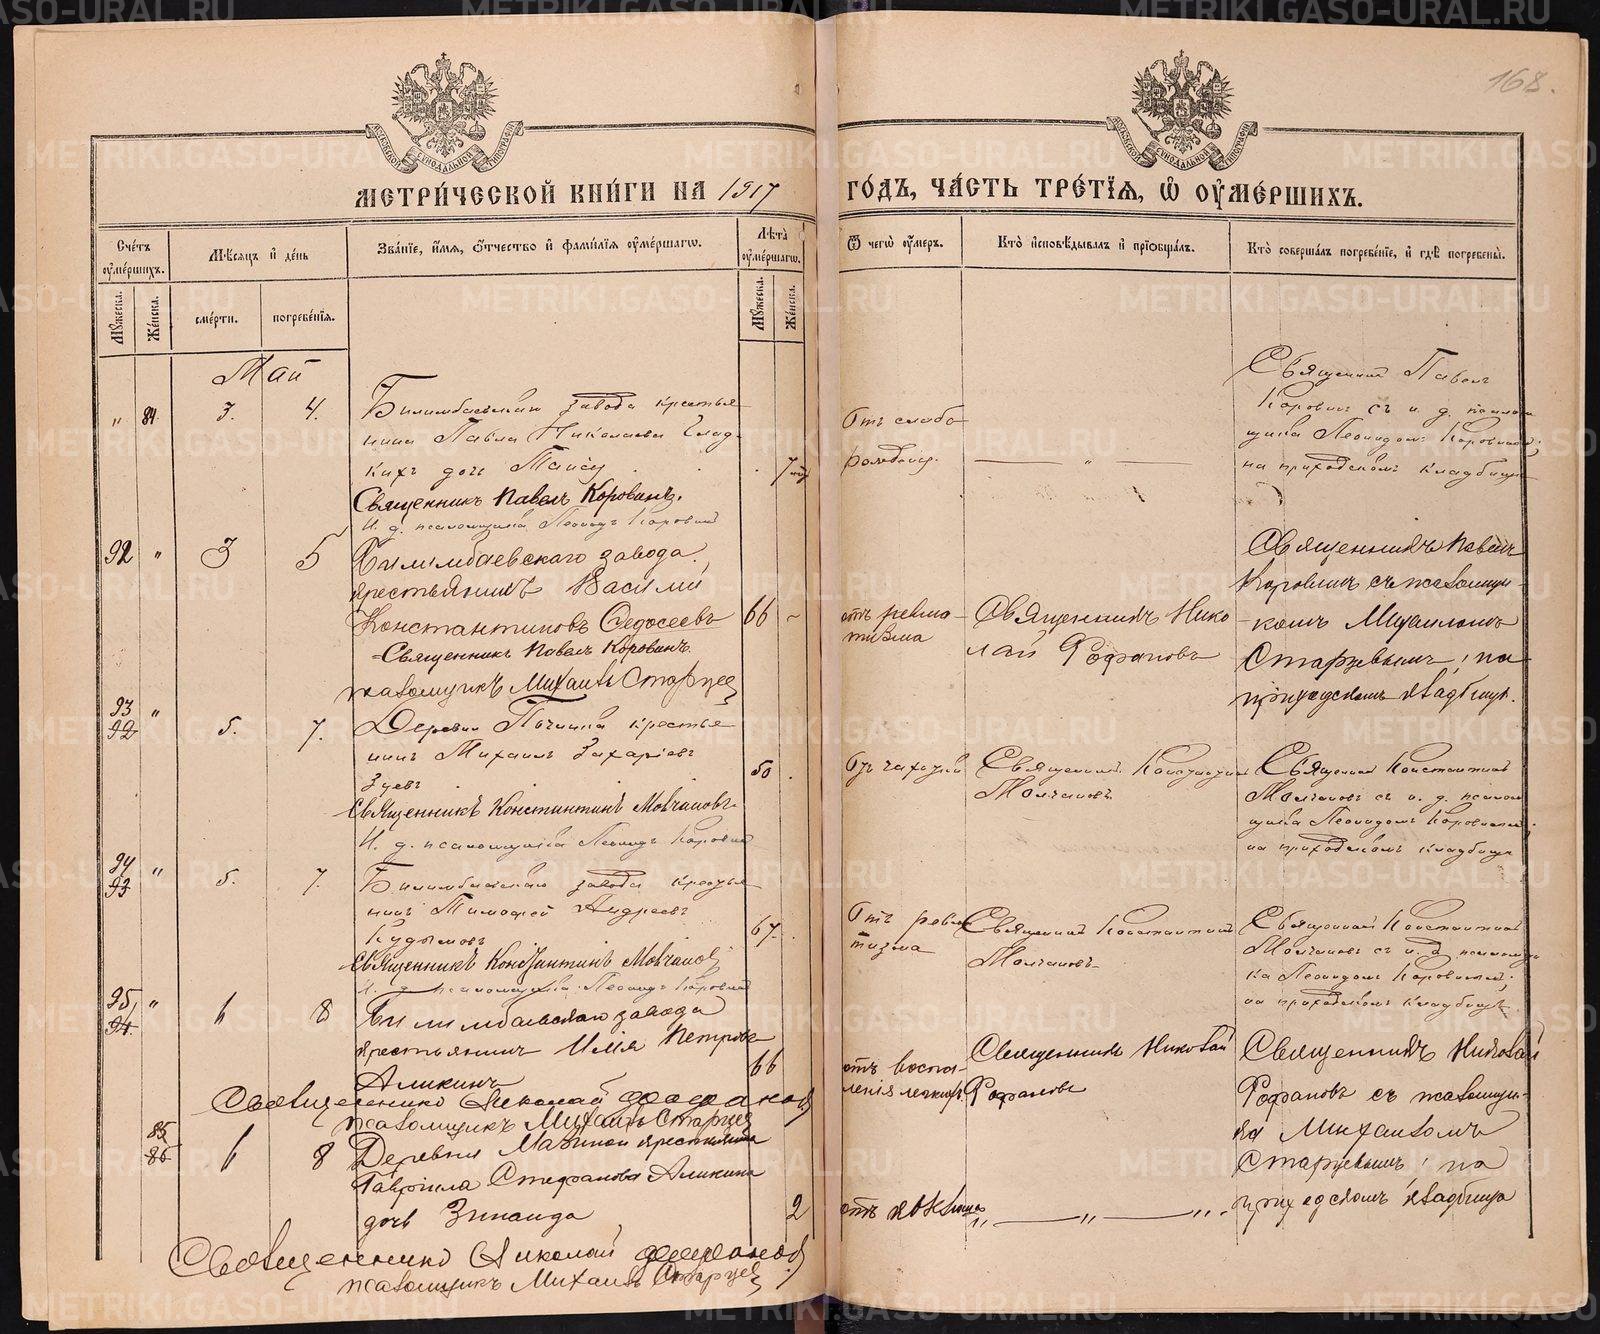 168.
МОСКОВСКОЙ СѴНОДАЛЬНОЙ ТИПОГРАФІИ
МОСКОВСКОЙ СѴНОДАЛЬНОЙ ТИПОГРАФІИ
МЕТРИ́ЧЕСКОЙ КНИ́ГИ НА 1917
ГО́ДЪ, ЧА́СТЬ ТРЕ́ТІЯ, Ѡ ОУМЕ́РШИХЪ.
Сче́тъ оумершихъ.
Мѣсяцъ и де́нь
Зва́нїе, и́мя, ѻ́тчество и фами́лїя оуме́ршагѡ.
Лѣта̀ оуме́ршагѡ.
Ѿ чегѡ̀ оу́меръ.
Кто̀ исповѣ́дывалъ и прїобща́лъ.
Кто̀ соверша́лъ погребе́нїе, и гдѣ̀ погребены̀.
Мꙋ́жеска.
Же́нска.
сме́рти.
погребе́нїя.
Мꙋ́жеска.
Же́нска.
Май
" 84. 3. 4.
Билимбаевскаго завода крестья
нина Павла Николаева Глад
кихъ дочь Таисія
Священникъ Павелъ Коровинъ.
И. д. псаломщика Леонидъ Коровинъ
Отъ слабо
рожденія.
Священникъ Павелъ
Коровинъ съ и. д. псалом
щика Леонидомъ Коровинымъ;
на приходскомъ кладбище
92 " 3 5
Билимбаевскаго завода
крестьянинъ Василий
Константиновъ Федосеевъ
66
Священникъ Павелъ Коровинъ
псаломщикъ Михаилъ Старцев
отъ ревма
тизма
Священникъ Нико
лай Фофановъ
Священникъ Павелъ
Коровинъ съ псаломщи-
комъ Михаиломъ
Старцевымъ; на
приходскомъ кладбище.
93
92 " 5. 7.
Деревни Починка крестья
нинъ Михаилъ Захаріевъ
Зуевъ
50
Священникъ Константинъ Молчановъ
И. д. псаломщика Леонидъ Коровинъ
Отъ чахотки
Священникъ Константинъ
Молчановъ
Священникъ Константинъ
Молчановъ съ и. д. псалом
щика Леонидомъ Коровинымъ;
на приходскомъ кладбище
94
93 " 5. 7.
Билимбаевскаго завода крестья
нинъ Тимофей Андреевъ
Кудымовъ
67.
Священникъ Константинъ Молчановъ
И. д. псаломщика Леонидъ Коровинъ
Отъ ревма
тизма
Священникъ Константинъ
Молчановъ
Священникъ Константинъ
Молчановъ съ и. д. псаломщи
ка Леонидомъ Коровинымъ;
на приходскомъ кладбище
95
94 " 6 8
Билимбаевскаго завода
крестьянинъ Илія Петровъ
Аликинъ
66
Священникъ Николай Фофановъ
псаломщикъ Михаилъ Старцев
отъ воспа
ленія легкихъ
Священникъ Николай
Фофановъ
Священникъ Николай
Фофановъ съ псаломщи-
ка Михаиломъ
Старцевымъ; на
приходскомъ кладбище
85
86 6 8
Деревни Мазиной крестьянина
Гавріила Стефанова Аликина
дочь Зинаида
2
Священникъ Николай Фофановъ
псаломщикъ Михаилъ Старцев